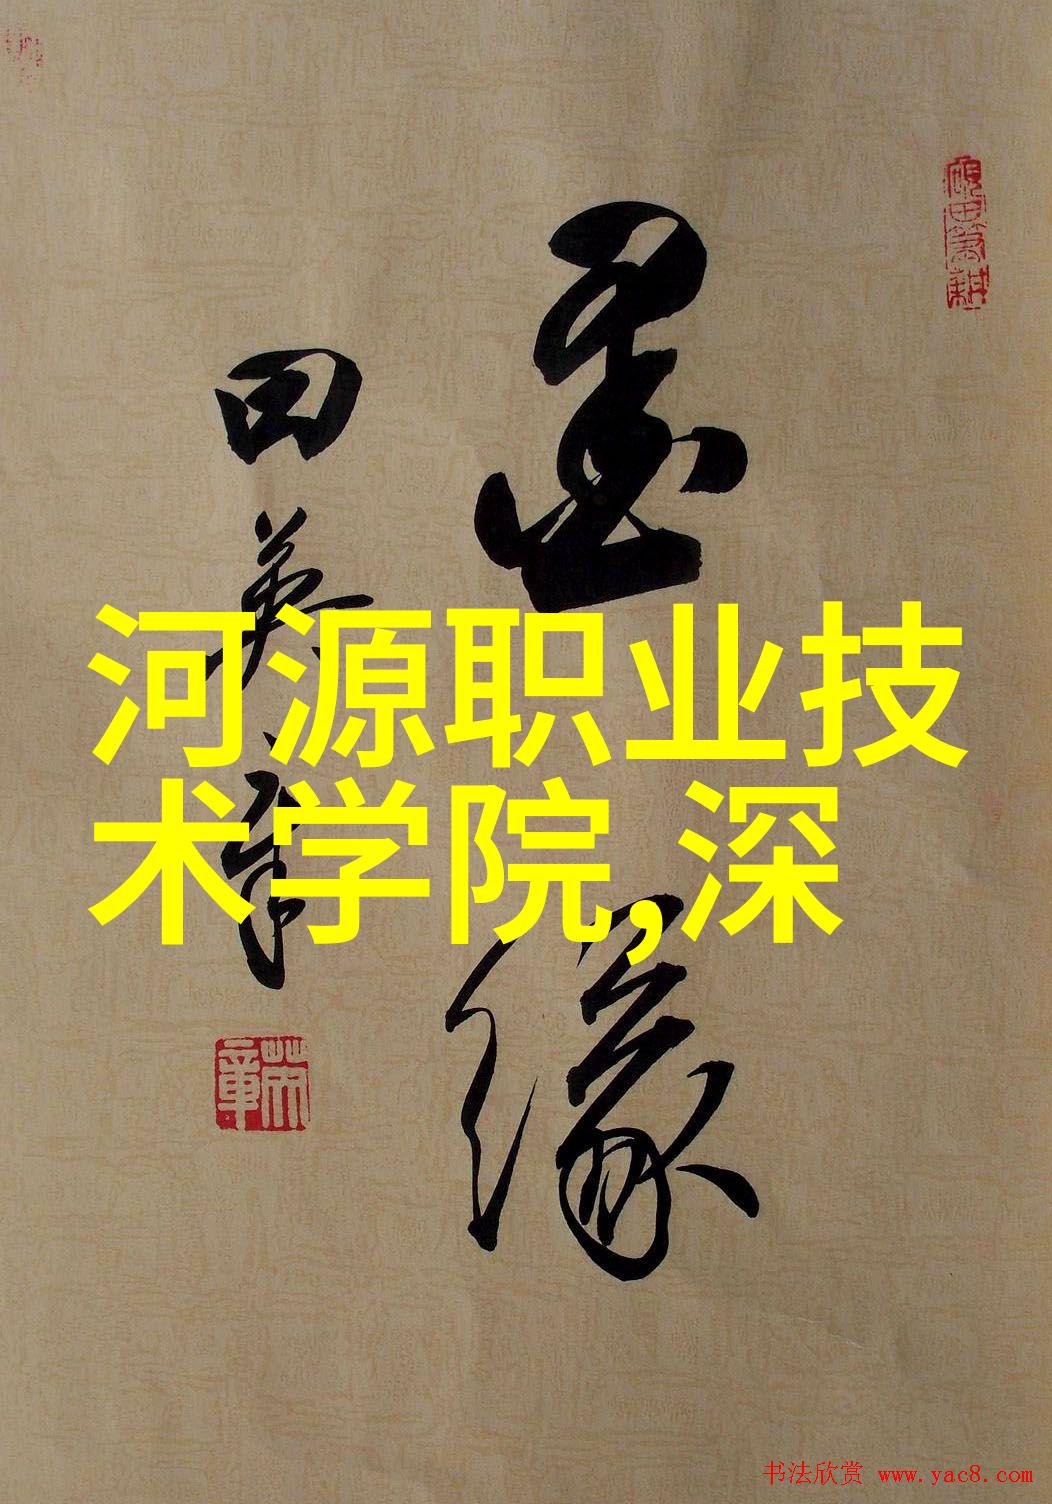 墨缘
田英章
河源职业技
术学院,深
书法欣赏 www.yac8.com